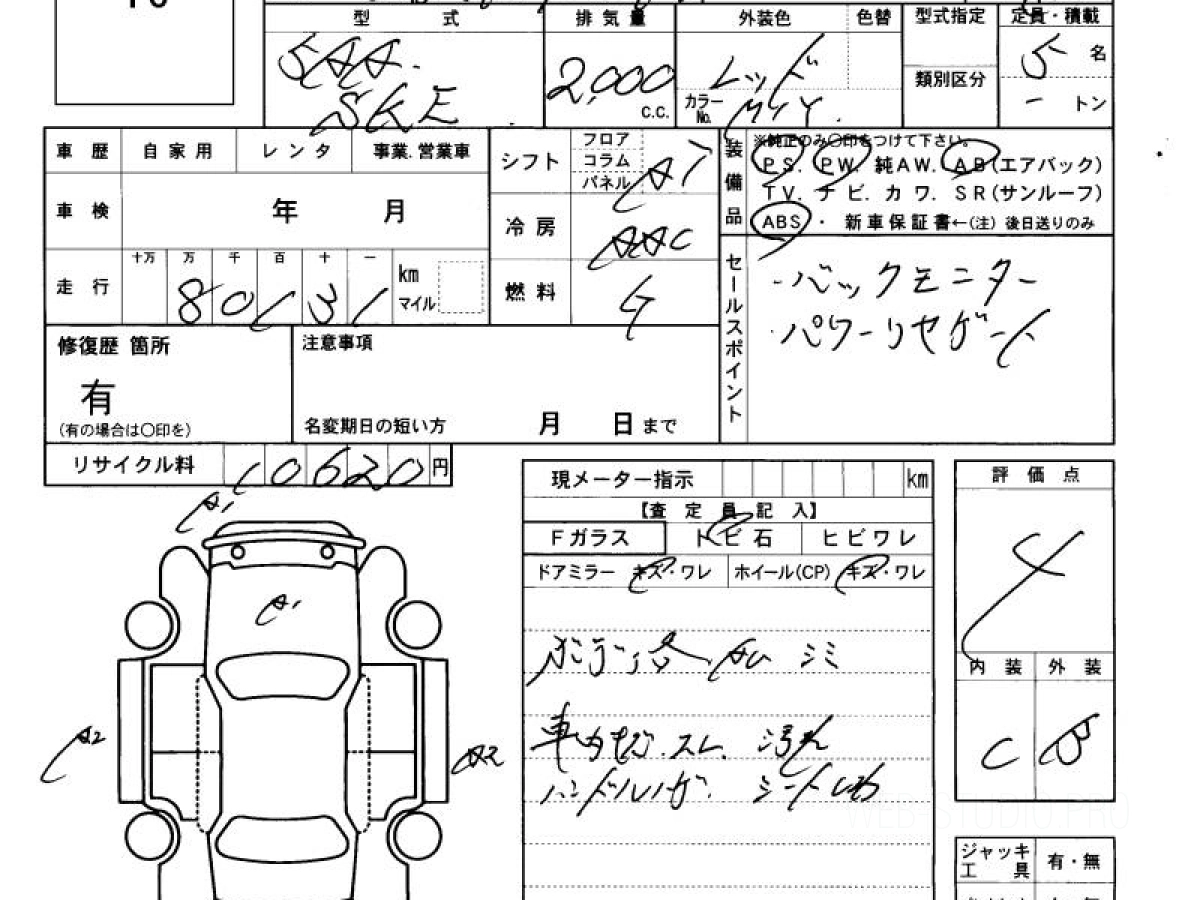 型 式
排 気 量
外装色
色替
型式指定
定員・積載
5AA-
SKE
2,000 c.c.
レッド
カラーNo.
類別区分
5 名
- トン
車 歴
自 家 用
レ ン タ
事業. 営業車
車 検
年 月
走 行
十万 万 千 百 十 一
8 0 1 3 1
km
マイル
シフト
フロア
コラム
パネル
AT
冷 房
AAC
燃 料
G
装備品
※純正のみ〇印をつけて下さい。
PS. PW. 純AW. AB(エアバック)
TV. ナビ. カワ. SR(サンルーフ)
ABS ・ 新車保証書←(注) 後日送りのみ
セールスポイント
・バックモニター
・パワーリヤゲート
修復歴 箇所
有
(有の場合は〇印を)
注意事項
名変期日の短い方 月 日まで
リサイクル料
1 0 6 2 0 円
現メーター指示 km
【査 定 員 記 入】
Fガラス
トビ石
ヒビワレ
ドアミラー キズ・ワレ
ホイール(CP) キズ・ワレ
シミ
車内キズ. スレ. 汚れ
ハンドルハゲ. シートしわ
A1
A1
A2
A2
評 価 点
4
内 装
外 装
C
B
ジャッキ
工 具
有・無